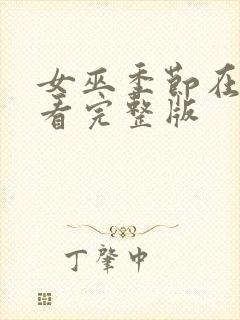 女巫季莭在
看完整版
丁肇中